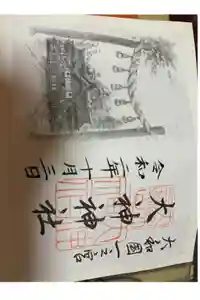 大和国一之宮
大神神社
令和二年十月三日